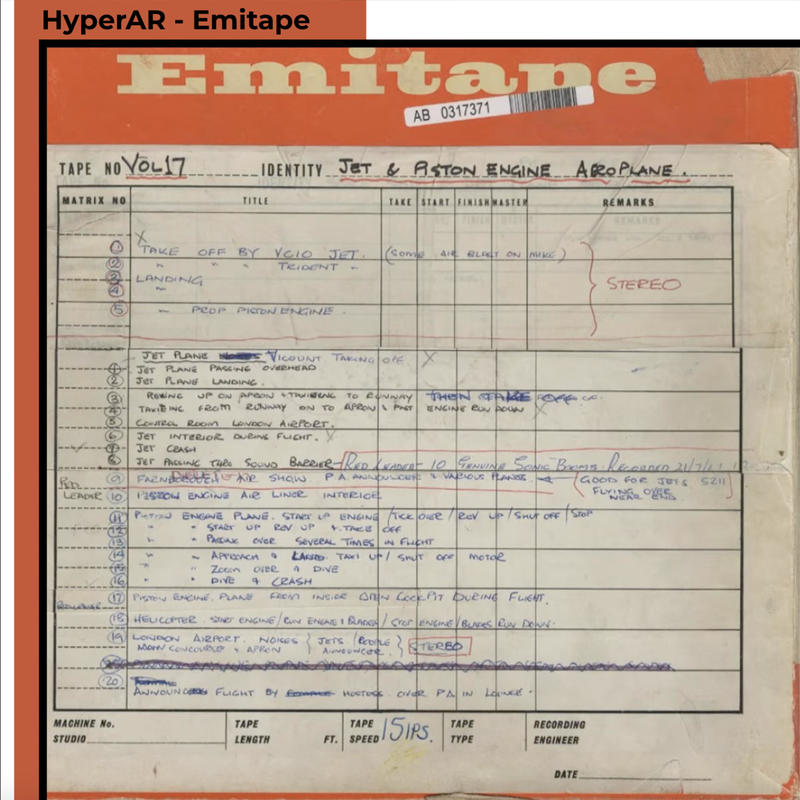 HyperAR - Emitape
Emitape
AB 0317371
TAPE NO VOL17 IDENTITY JET & PISTON ENGINE AEROPLANE.
MATRIX NO TITLE TAKE START FINISH MASTER REMARKS
X
1 TAKE OFF BY VC10 JET. (SOME AIR BLAST ON MIKE)
2 " " " TRIDENT "
3 LANDING
4 "
STEREO
5 " PROP PISTON ENGINE.
JET PLANE VICOUNT TAKING OFF. X
1 JET PLANE PASSING OVERHEAD
2 JET PLANE LANDING.
3 REVING UP ON APRON & TAXIING TO RUNWAY THEN TAKE OFF
4 TAXIING FROM RUNWAY ON TO APRON & PAST ENGINE RUN DOWN X
5 CONTROL ROOM LONDON AIRPORT.
6 JET INTERIOR DURING FLIGHT. X
7 JET CRASH
8 JET PASSING THRO SOUND BARRIER - RED LEADER 10 GENUINE SONIC BOOMS. RECORDED
9 FARNBOROUGH AIR SHOW. P.A ANNOUNCER & VARIOUS PLANES. (GOOD FOR JETS
FLYING OVER
NEAR END.
RED
LEADER 10 PISTON ENGINE AIR LINER INTERIOR
11 PISTON ENGINE PLANE. START UP ENGINE / TICK OVER / REV UP / SHUT OFF / STOP
12 " " START UP REV UP & TAKE OFF
13 " " PASSING OVER SEVERAL TIMES IN FLIGHT
14 " " APPROACH & LAND TAXI UP / SHUT OFF MOTOR
15 " " ZOOM OVER & DIVE
16 " " DIVE & CRASH
17 PISTON ENGINE. PLANE FROM INSIDE OPEN COCKPIT DURING FLIGHT.
18 HELICOPTER. START ENGINE / RUN ENGINE & BLADES / STOP ENGINE / BLADES RUN DOWN.
19 LONDON AIRPORT. NOISES } JETS / PEOPLE } STEREO
MAIN CONCOURSE & APRON ANNOUNCER.
20
ANNOUNCING FLIGHT BY HOSTESS OVER PA IN LOUNGE.
MACHINE No. TAPE TAPE 15IPS. TAPE RECORDING
STUDIO LENGTH FT. SPEED TYPE ENGINEER
DATE